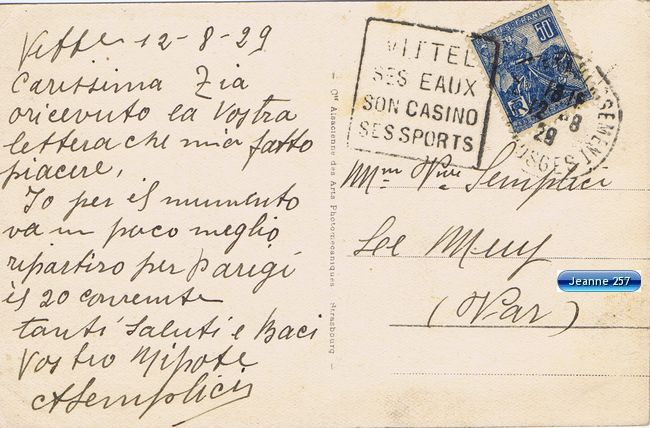 Vittel 12-8-29
Carissima Zia
o ricevuto la Vostra
lettera che mia fatto
piacere,
Io per il mumento
va un poco meglio
ripartiro per Parigi
il 20 corrente
tanti Saluti e Baci
Vostro Nipote
ASemplici
— Cie Alsacienne des Arts Photomécaniques Strasbourg —
VITTEL
SES EAUX
SON CASINO
SES SPORTS
POSTES-FRANCE
50c
12-8
29
VOSGES
Mme Vve Semplici
Le Muy
(Var)
Jeanne 257